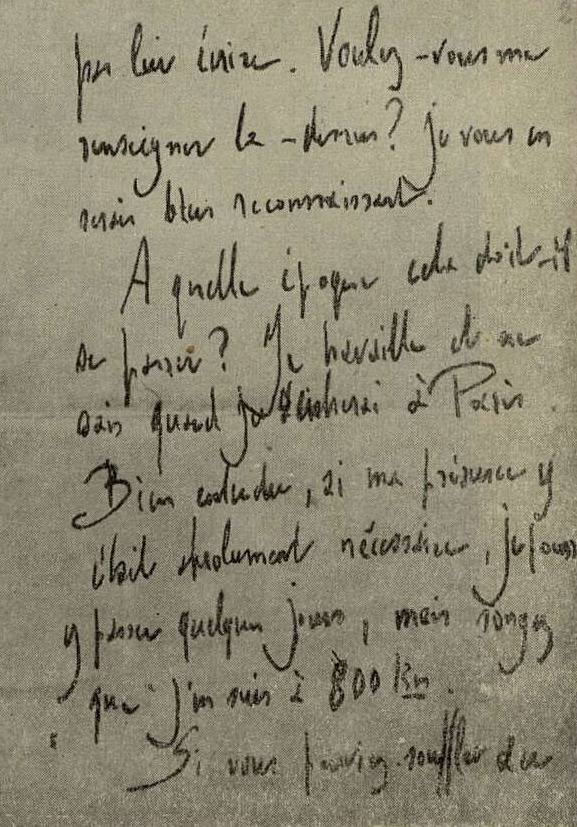 pas leur écrire. Voulez-vous me
renseigner là-dessus? Je vous en
serais bien reconnaissant.
A quelle époque cela doit-il
se passer? Je travaille et ne
sais quand je à Paris.
Bien entendu, si ma présence y
était absolument nécessaire, je
y passer quelques jours, mais songez
que j'en suis à 800 Km.
Si vous pouviez souffler de